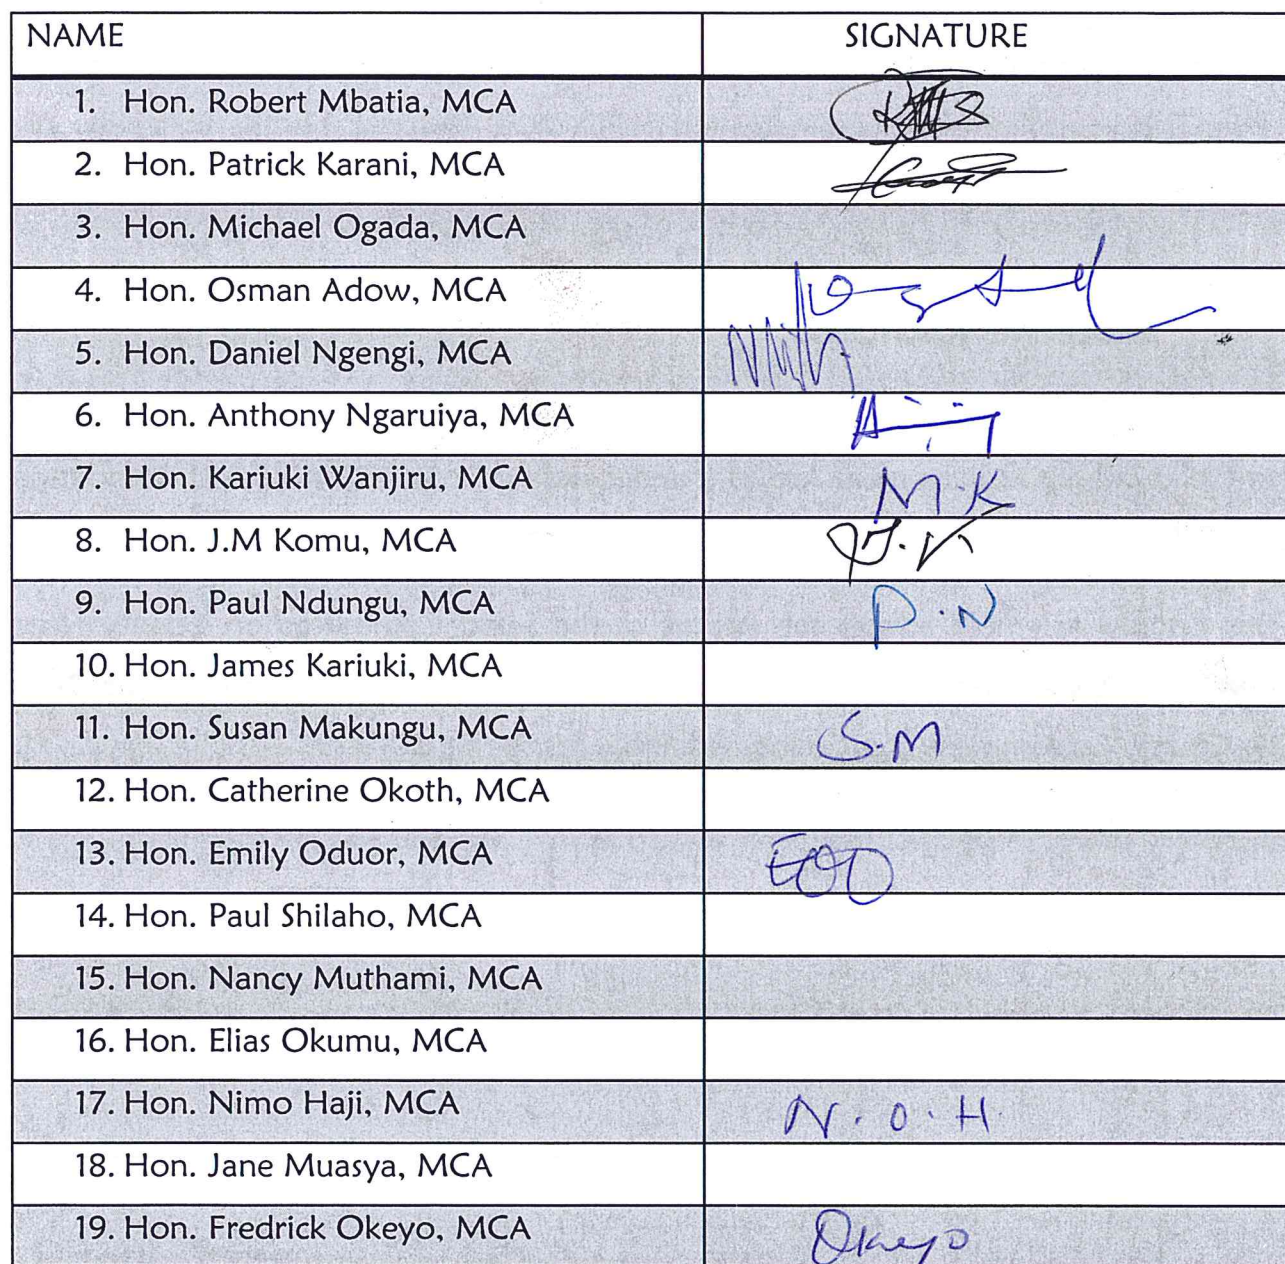 NAME SIGNATURE
1. Hon. Robert Mbatia, MCA
2. Hon. Patrick Karani, MCA
3. Hon. Michael Ogada, MCA
4. Hon. Osman Adow, MCA
5. Hon. Daniel Ngengi, MCA
6. Hon. Anthony Ngaruiya, MCA
7. Hon. Kariuki Wanjiru, MCA M.K
8. Hon. J.M Komu, MCA
9. Hon. Paul Ndungu, MCA P.N
10. Hon. James Kariuki, MCA
11. Hon. Susan Makungu, MCA S.M
12. Hon. Catherine Okoth, MCA
13. Hon. Emily Oduor, MCA EOO
14. Hon. Paul Shilaho, MCA
15. Hon. Nancy Muthami, MCA
16. Hon. Elias Okumu, MCA
17. Hon. Nimo Haji, MCA N.O.H
18. Hon. Jane Muasya, MCA
19. Hon. Fredrick Okeyo, MCA Okeyo